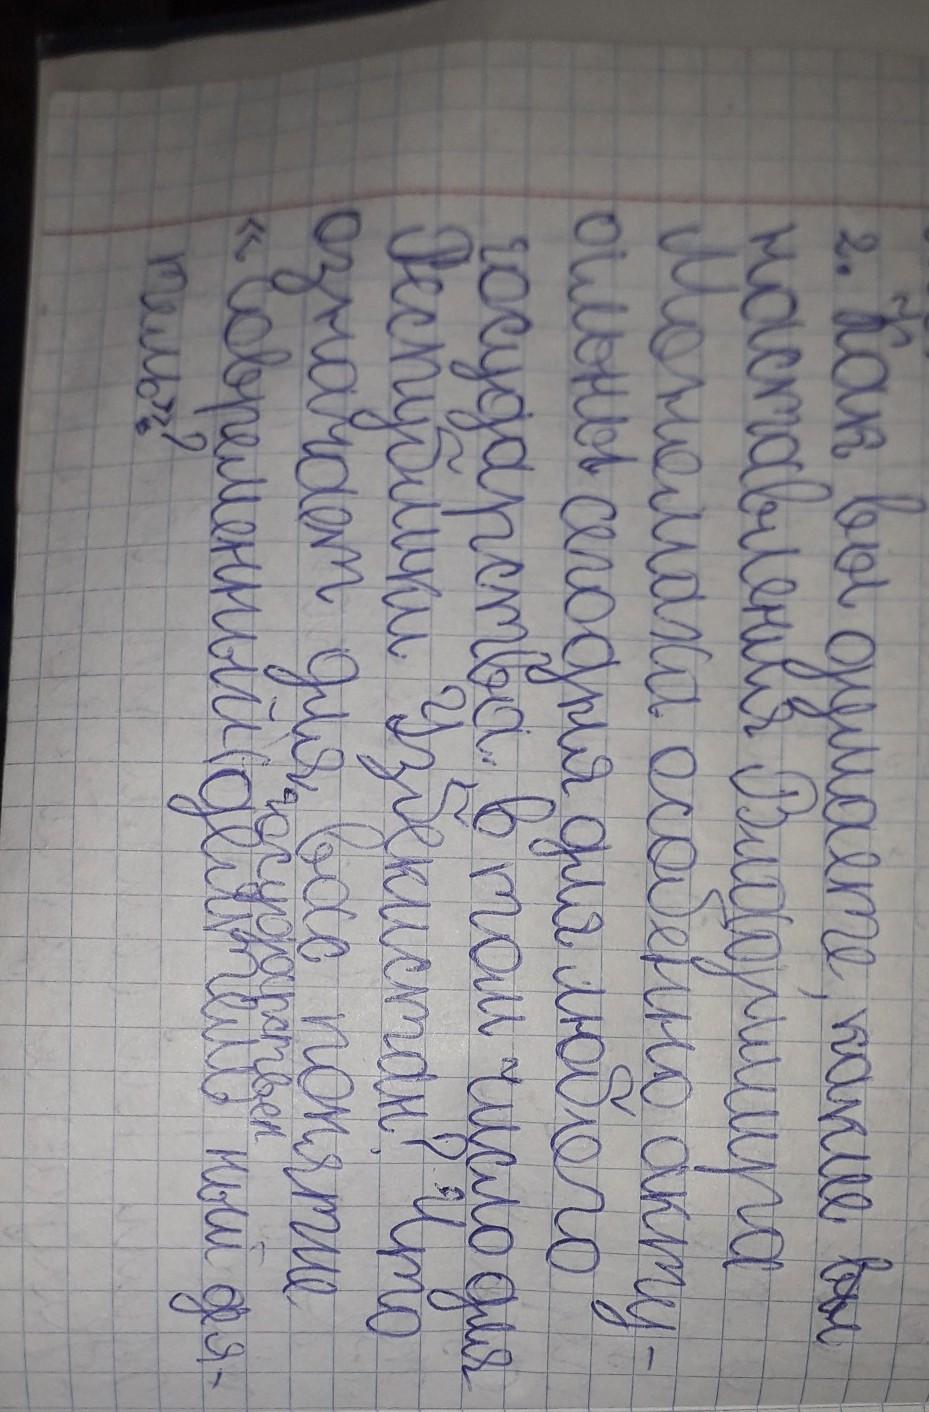 2. Как вы думаете, какие вы
наставления Владимира
Мономаха особенно акту-
альны сегодня для любого
государства, в том число для
Республики Узбекистан? Что
означает для вас понятие
«Современный государствен
ный дея-
тель»?